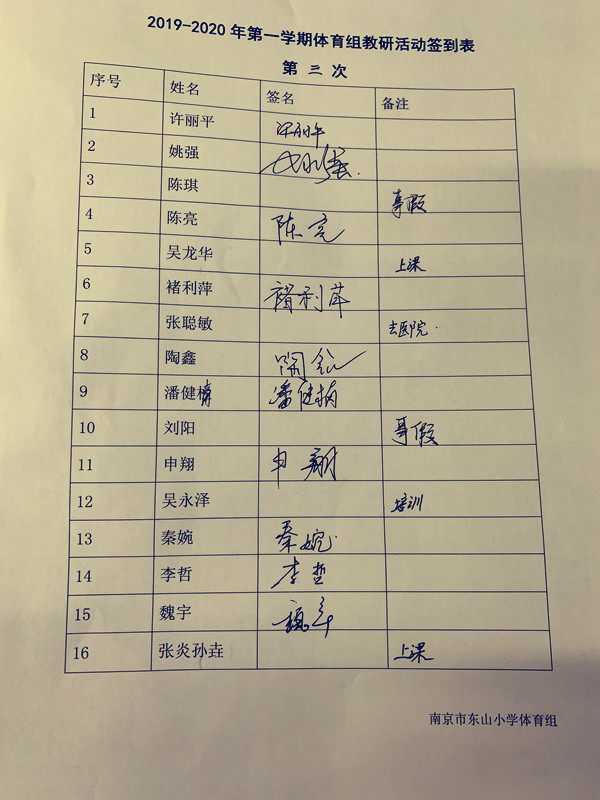 2019-2020年第一学期体育组教研活动签到表
第 三 次
序号 姓名 签名 备注
1 许丽平 许丽平
2 姚强 姚强
3 陈琪 事假
4 陈亮 陈亮
5 吴龙华 上课
6 褚利萍 褚利萍
7 张聪敏 去医院.
8 陶鑫 陶鑫
9 潘健楠 潘健楠
10 刘阳 事假
11 申翔 申翔
12 吴永泽 培训
13 秦婉 秦婉
14 李哲 李哲
15 魏宇 魏宇
16 张炎孙垚 上课
南京市东山小学体育组